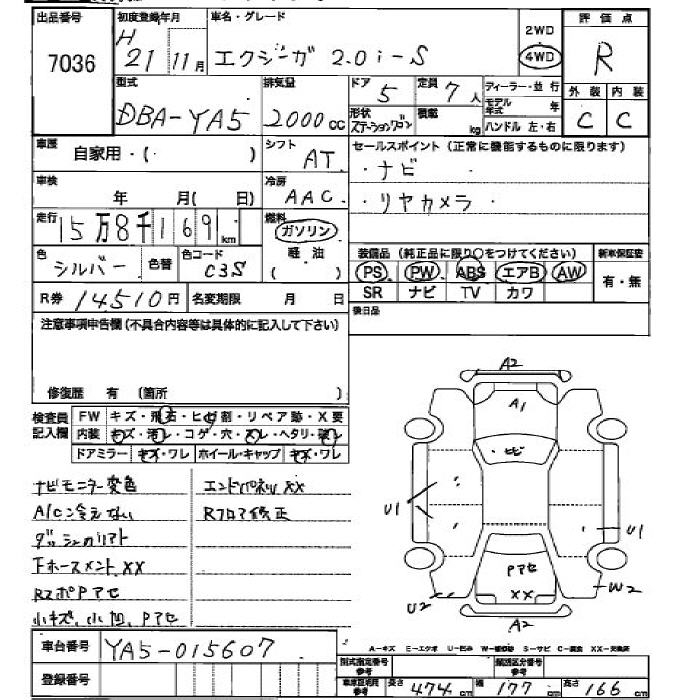 出品番号 初度登録年月 車名・グレード 評価点
7036 H 21 11月 エクシーガ 2.0i-S 2WD 4WD R
型式 排気量 ドア 定員 ディーラー・並行 外装 内装
DBA-YA5 2000cc 5 7人 モデル年式 年 C C
形状 ステーションワゴン 積載 kg ハンドル 左・右
車歴 自家用・(・ ) シフト AT セールスポイント(正常に機能するものに限ります)
車検 年 月( 日) 冷房 AAC ・ナビ
・リヤカメラ・
走行 15万8千169km 燃料 ガソリン 軽油 ( )
色 シルバー 色替 色コード C3S 装備品(純正品に限り○をつけてください) 新車保証書
PS PW ABS エアB AW 有・無
SR ナビ TV カワ
R券 14510円 名変期限 月 日 後日品
注意事項申告欄(不具合内容等は具体的に記入して下さい)
修復歴 有 (箇所 )
検査員記入欄 FW キズ・飛石・ヒビ割・リペア跡・X要
内装 キズ・汚レ・コゲ・穴・スレ・ヘタリ・破レ
ドアミラー キズ・ワレ ホイール・キャップ キズ・ワレ
ナビモニター変色 エンドパネルXX
A/C冷えない Rフロア修正
ダッシュカリアト
下ホースメントXX
RズポPアセ
小キズ、小凹、Pアセ
A2
A1
ヒビ
U1 U1
Pアセ
XX
U2 W2
A2
車台番号 YA5-015607
登録番号
A=キズ E=エクボ U=凹み W=補修跡 S=サビ C=腐食 XX=交換済
型式指定番号 参考 類別区分番号 参考
車庫証明用 参考 長さ 474cm 幅 177cm 高さ 166cm